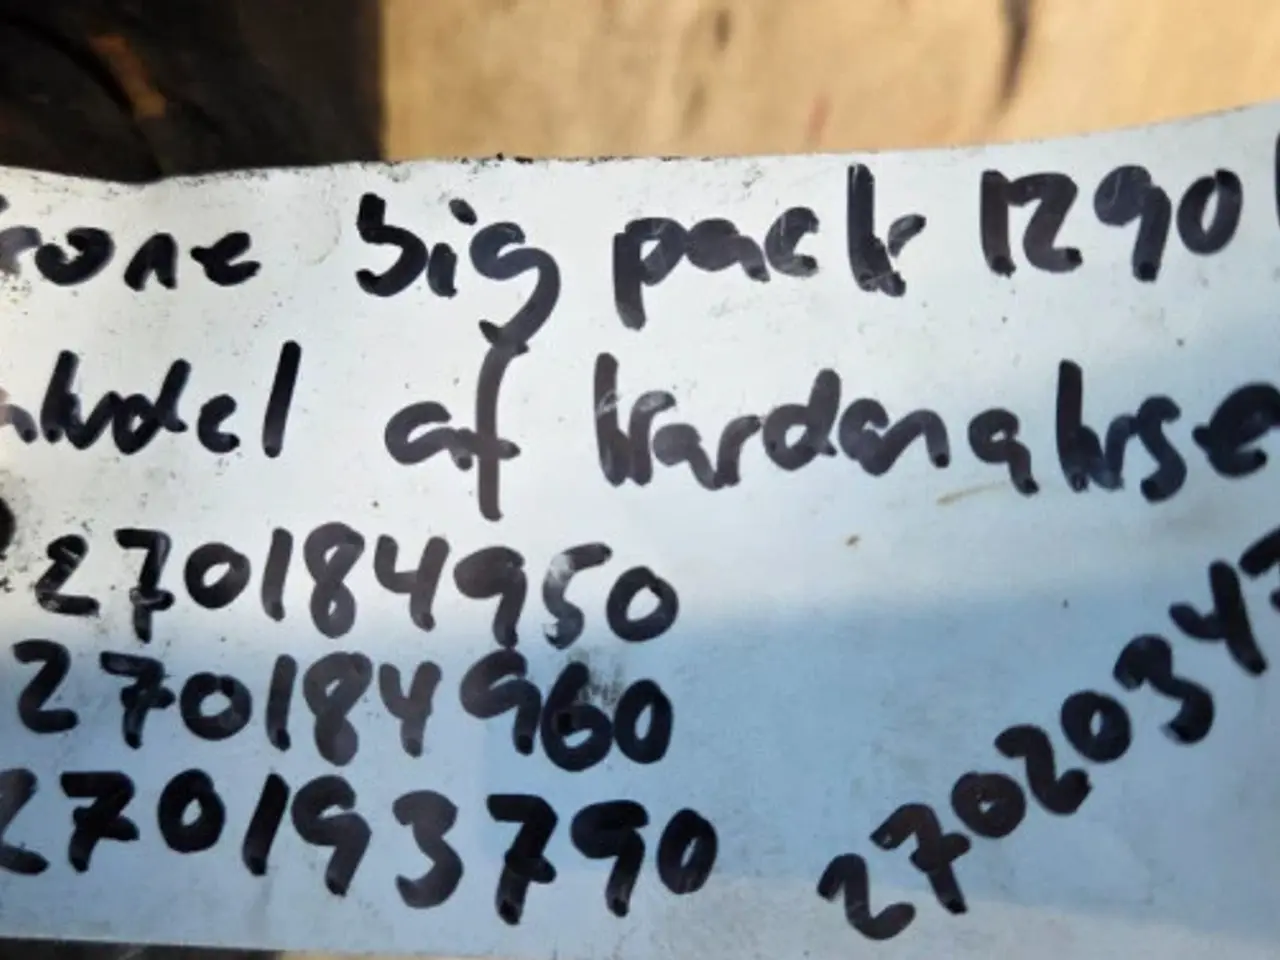 krone big pack 1290
af kardanakse
270184950
270184960
270193790
27020347